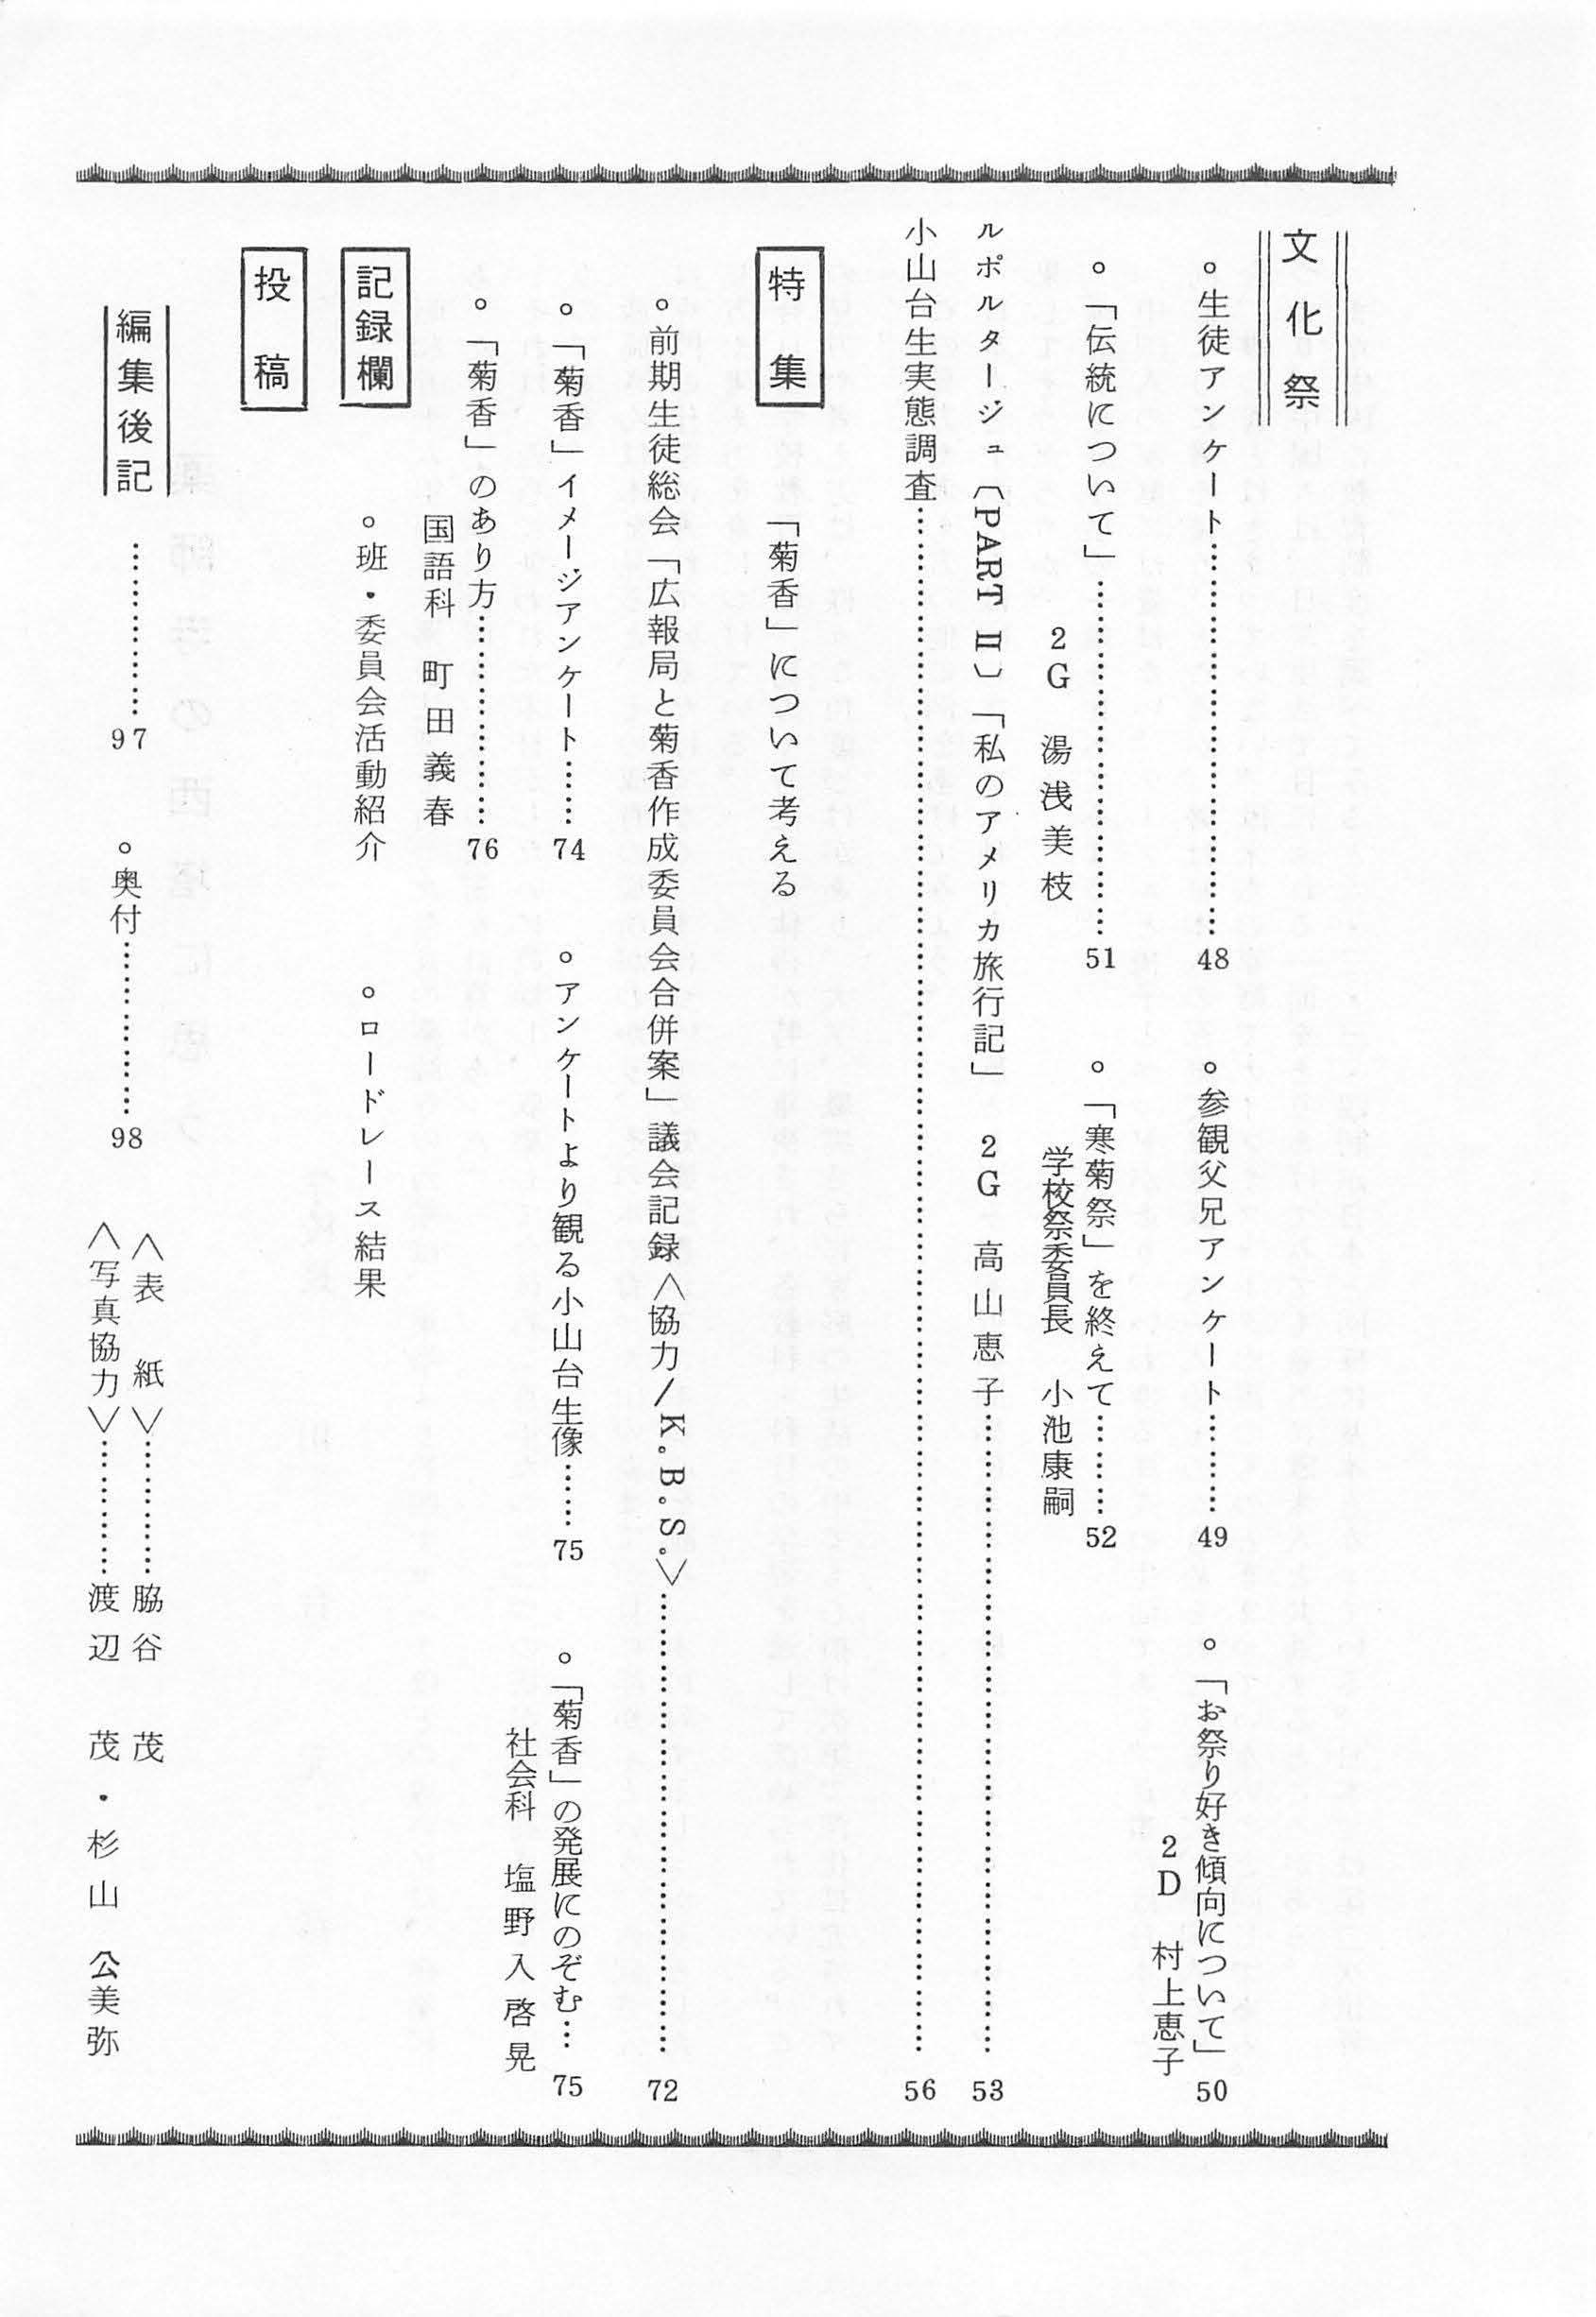 文化祭
○生徒アンケート……………………………48
○参観父兄アンケート………49
○「お祭り好き傾向について」50
2D 村上恵子
○「伝統について」……………………………51
2G 湯浅美枝
○「寒菊祭」を終えて………52
学校祭委員長 小池康嗣
ルポルタージュ〔PART Ⅱ〕「私のアメリカ旅行記」 2G 高山恵子……………………………………………53
小山台生実態調査……………………………………………………………………………………………………56
特集
「菊香」について考える
○前期生徒総会「広報局と菊香作成委員会合併案」議会記録〈協力/K.B.S.〉……………………………72
○「菊香」イメージアンケート……74
○アンケートより観る小山台生像……75
○「菊香」の発展にのぞむ…75
社会科 塩野入啓晃
○「菊香」のあり方………………76
国語科 町田義春
記録欄
○班・委員会活動紹介
○ロードレース結果
投稿
編集後記……………97
○奥付……………98
〈表 紙〉…………脇谷 茂
〈写真協力〉…………渡辺 茂・杉山 公美弥